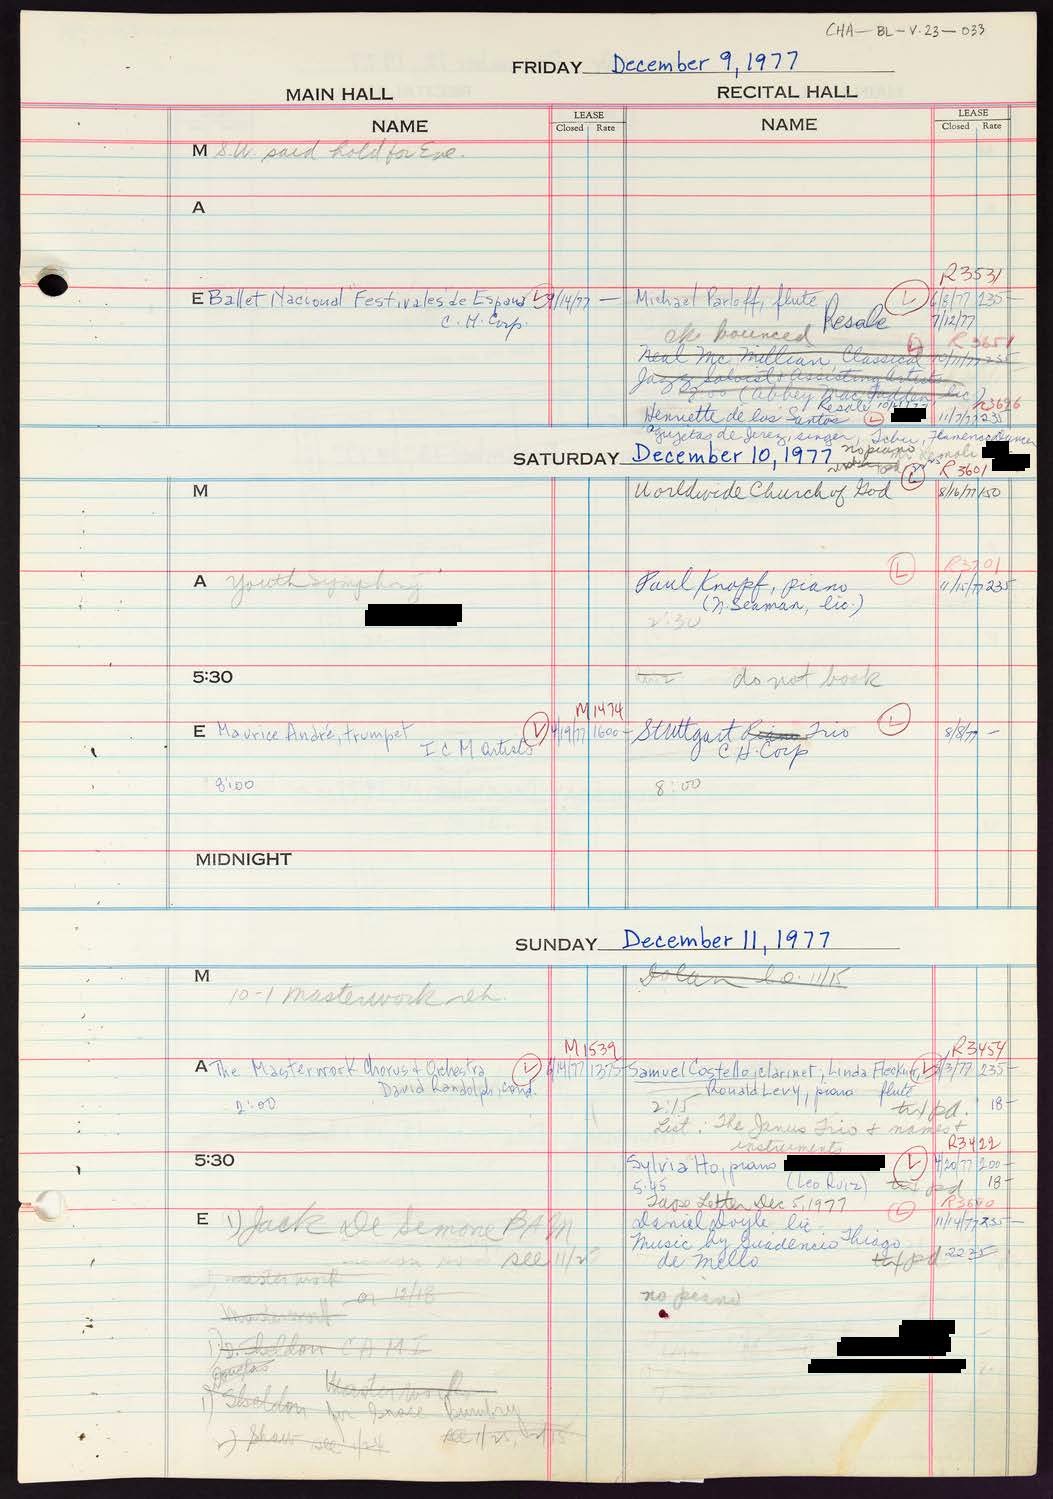 CHA-BL-V.23-033
FRIDAY December 9, 1977
MAIN HALL
RECITAL HALL
NAME
LEASE
Closed Rate
NAME
LEASE
Closed Rate
M S.W. said hold for Eve.
A
R3531
E Ballet Nacional "Festivales de España L 9/14/77 —
C.H. Corp.
Michael Parloff, flute L 6/8/77 235—
Resale 7/12/77
ck bounced
R 3651
Neal Mc Millian Classical 10/11/77 235
Jazz Soloist & Assisting Artists
Zoo (Abbey Mac Fadden, lic)
Resale
R3696
Henriette de los Santos L 11/7/77 235
Agujetas de Jerez, singer, Flamenco dancer
SATURDAY December 10, 1977
no piano
R 3601
M
Worldwide Church of God L 8/16/77 150
A Youth Symphony
R3701
Paul Knopf, piano L 11/15/77 235
(N. Seaman, lic.)
2:30
5:30
do not book
M1474
E Maurice André, trumpet L 4/19/77 1600—
ICM Artists
8:00
Stuttgart Piano Trio L 8/8/77 —
C H Corp
8:00
MIDNIGHT
SUNDAY December 11, 1977
M
10-1 Masterwork reh.
Dolan Co. 11/15
M1539
A The Masterwork Chorus & Orchestra L 6/14/77 1375
David Randolph, cond.
2:00
R3454
Samuel Costello, clarinet; Linda L 5/3/77 235—
Ronald Levy, piano flute
2:15 txt pd. 18—
List: The Janus Trio & names &
instruments
5:30
R3422
Sylvia Ho, piano L 4/20/77 200—
5:45 (Leo Ruiz) txt pd 18—
Tape Letter Dec 5, 1977
E 1) Jack De Simone BAM
see 11/25
masterwork
or 12/18
Masterwork
Sheldon CAMI
Douglas
Masterwork
1) Sheldon for Grace Bumbry
2) Shaw see 1/24 see 1/25,
Daniel Doyle lic. L 11/14/77 235—
Music by Guadencio Thiago
de Mello txt pd 22 25
no piano